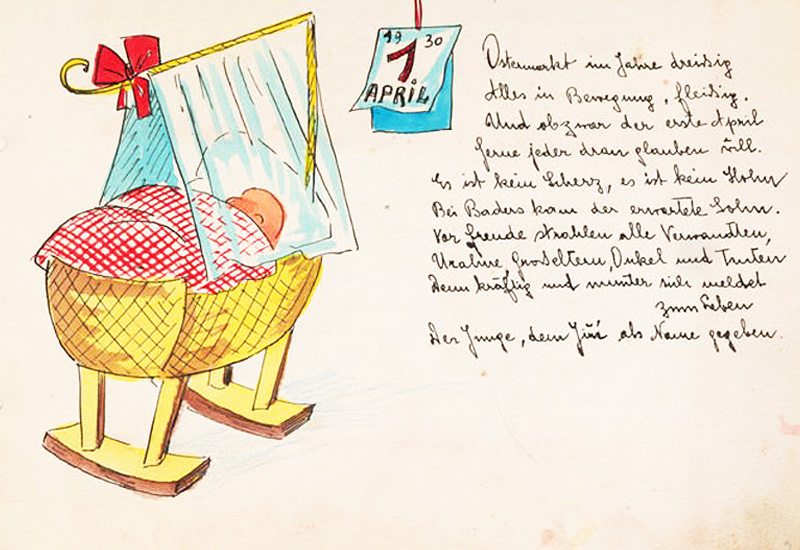 19 30
1
APRIL
Ostermarkt im Jahre dreisig
Alles in Bewegung, fleisig.
Und obzwar der erste April
Ferne jeder dran glauben will.
Es ist kein Scherz, es ist kein Hohn
Bei Baders kam der erwartete Sohn.
Vor Freude strahlen alle Verwandten,
Urahne Groseltern, Onkel und Tanten
Denn kräftig und munter sich meldet
zum Leben
Der Junge, dem als Name gegeben.